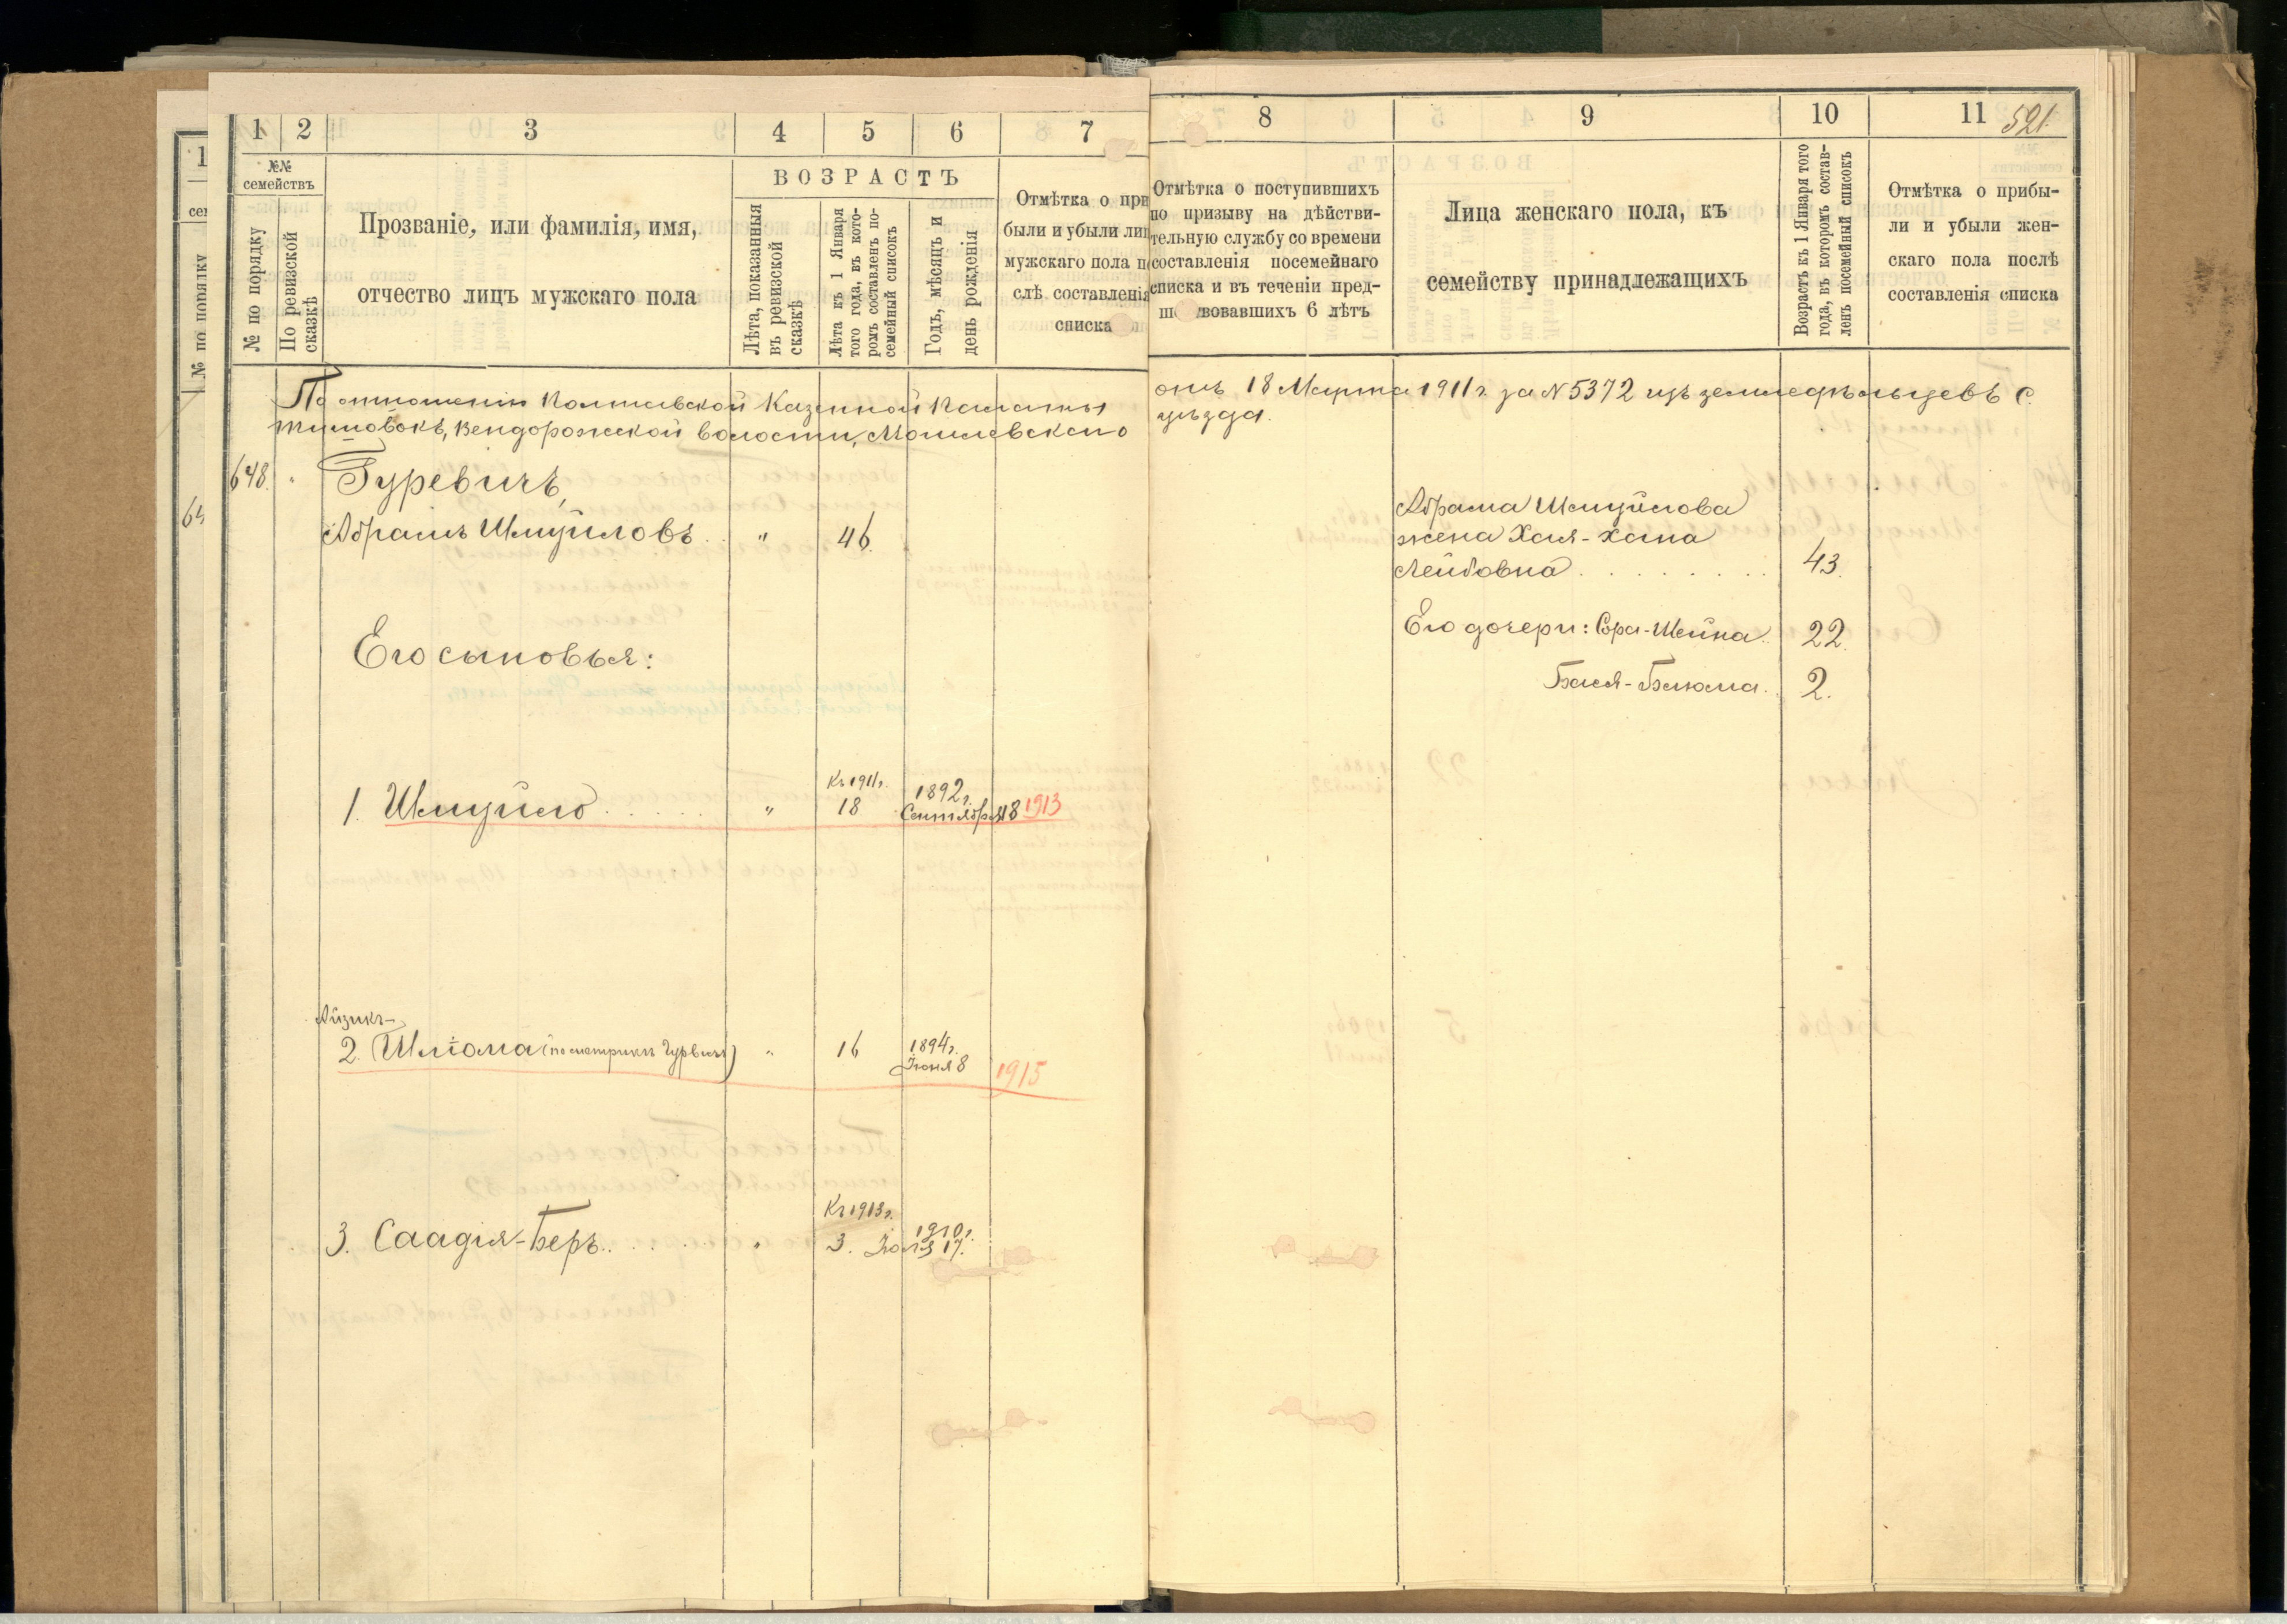 1 2 3 4 5 6 7
№№ семействъ
№ по порядку
По ревизской сказкѣ
Прозваніе, или фамилія, имя,
отчество лицъ мужскаго пола
ВОЗРАСТЪ
Лѣта, показанныя
въ ревизской
сказкѣ
Лѣта къ 1 Января
того года, въ кото-
ромъ составленъ по-
семейный списокъ
Годъ, мѣсяцъ и
день рожденія
Отмѣтка о при
были и убыли лиц
мужскаго пола по
слѣ составленія
списка
8 9 10 11
521.
Отмѣтка о поступившихъ
по призыву на дѣйстви-
тельную службу со времени
составленія посемейнаго
списка и въ теченіи пред-
ш вовавшихъ 6 лѣтъ
Лица женскаго пола, къ
семейству принадлежащихъ
Возрастъ къ 1 Января того
года, въ которомъ состав-
ленъ посемейный списокъ
Отмѣтка о прибы-
ли и убыли жен-
скаго пола послѣ
составленія списка
По отношенію Полтавской Казенной Палаты отъ 18 Марта 1911 г. за N 5372 изъ земледѣльцевъ с.
Вендорожской волости, Могилевскаго уѣзда.
648. " Гуревичъ,
Абрамъ Шмуйловъ . . " 46.
Его сыновья:
Къ 1911 г.
1. Шмуйло . . . . . " 18 1892 г.
Сентября 18 1913
Айзикъ-
2. Шлiома (по метрикѣ Гурвичъ) " 16 1894 г.
Іюня 8 1915
Къ 1913 г.
3. Саадія-Беръ . . . . . " 3. 1910 г.
Іюля 17.
Абрама Шмуйлова
жена Хая-Хана
Лейбовна . . . . . . . . 43.
Его дочери: Сора-Шейна . . 22.
Бася-Блюма . . 2.